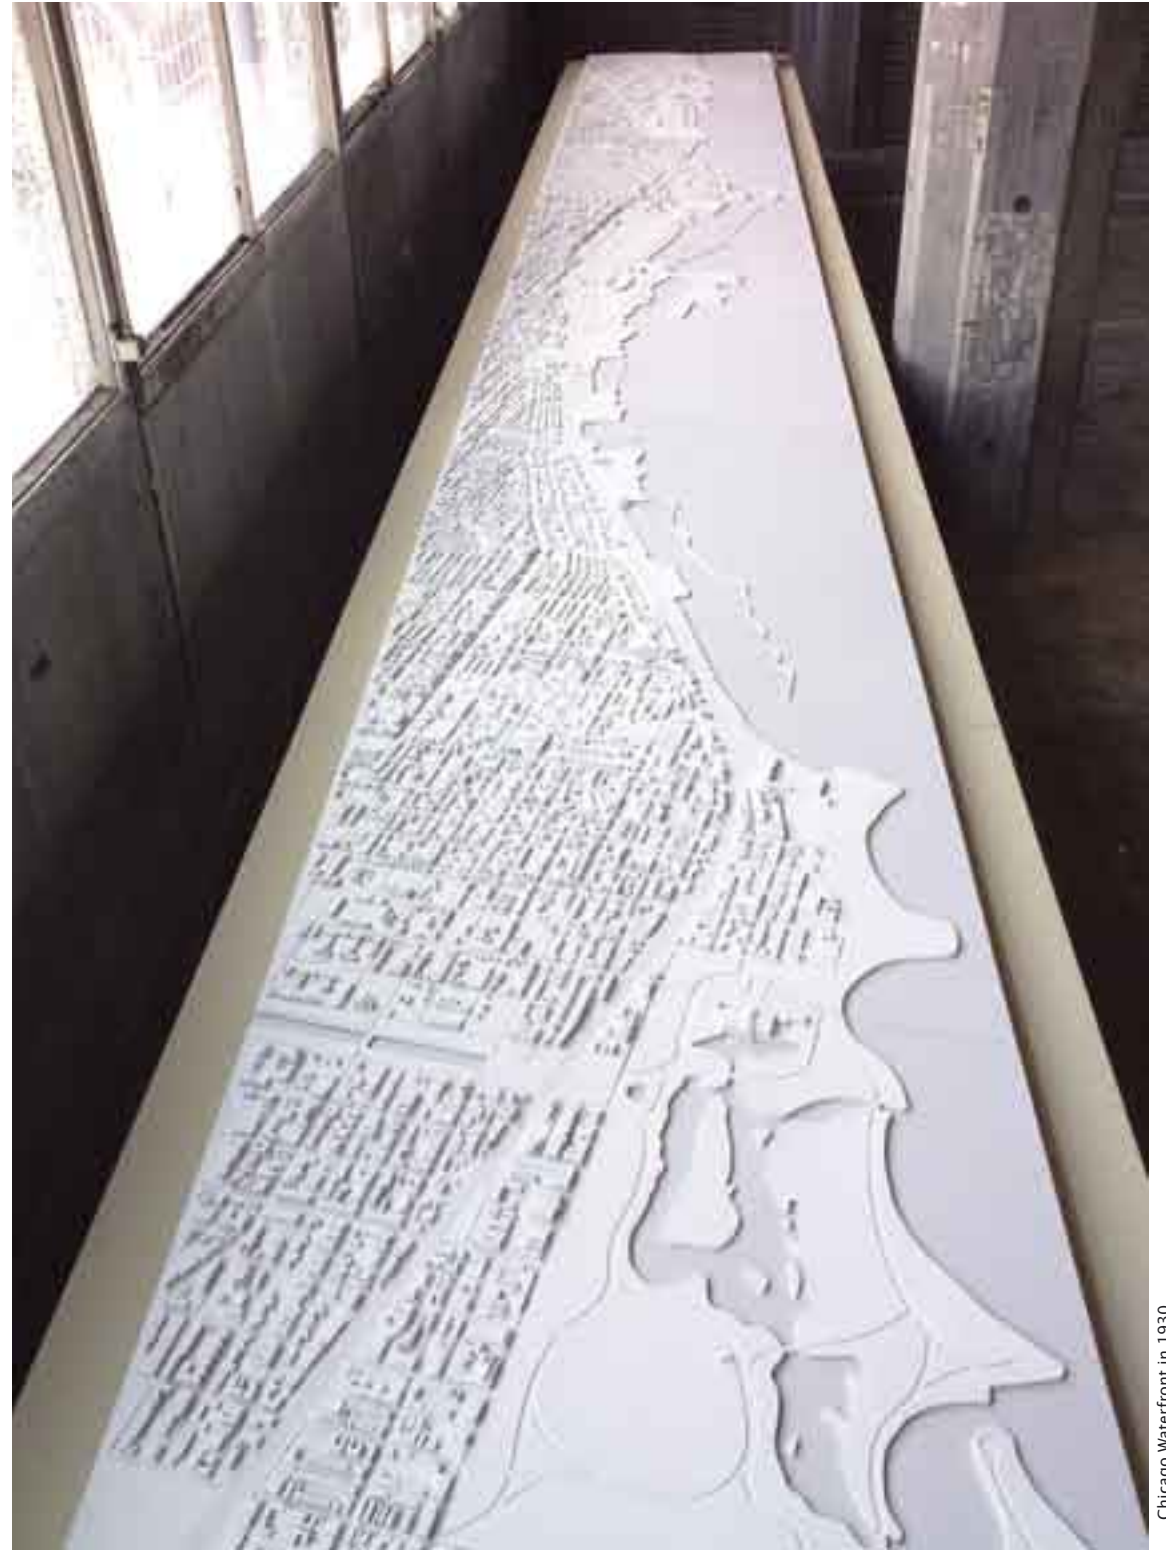 Chicago Waterfront in 1930